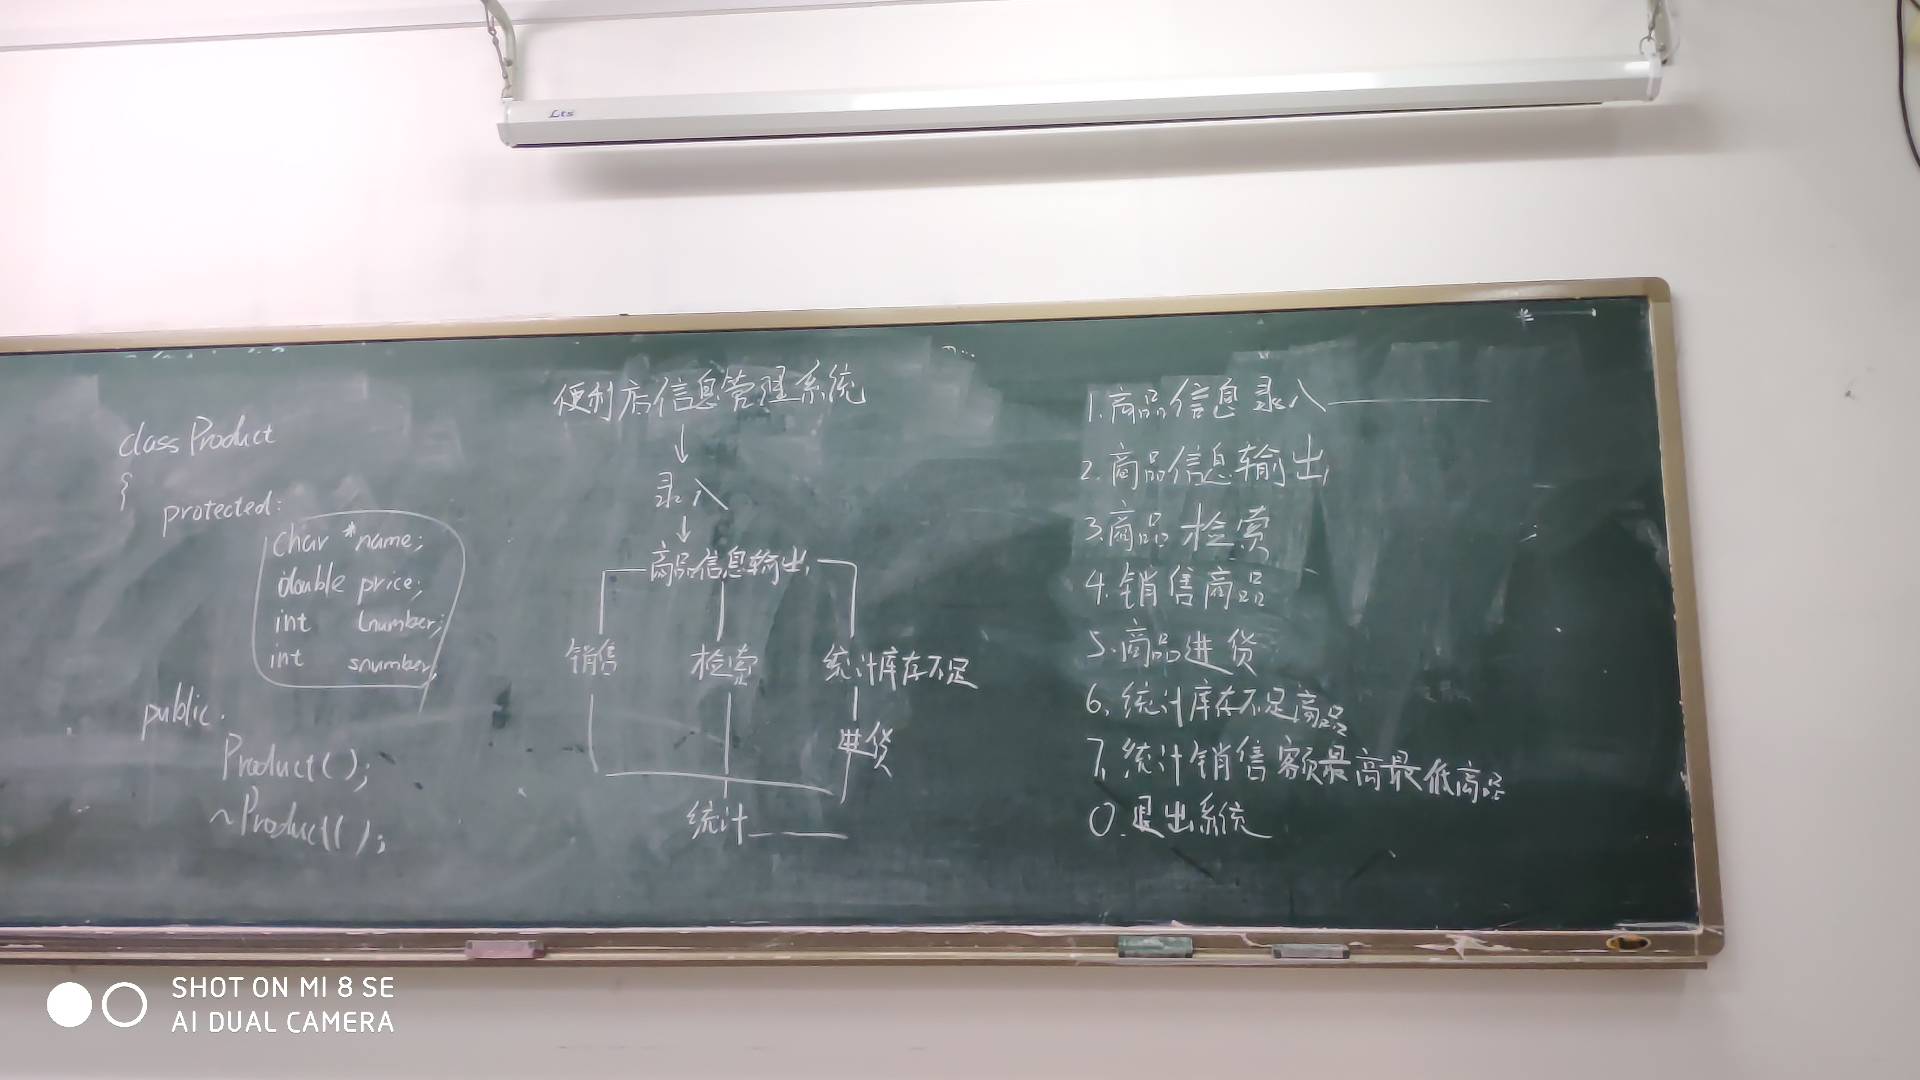 Lts
class Product
{
protected:
char *name;
double price;
int lnumber;
int snumber;
public:
Product();
~Product();
便利店信息管理系统
录入
商品信息输出
销售 检索 统计库存不足
进货
统计
1.商品信息录入
2.商品信息输出
3.商品检索
4.销售商品
5.商品进货
6.统计库存不足商品
7.统计销售额最高最低商品
0.退出系统
SHOT ON MI 8 SE
AI DUAL CAMERA